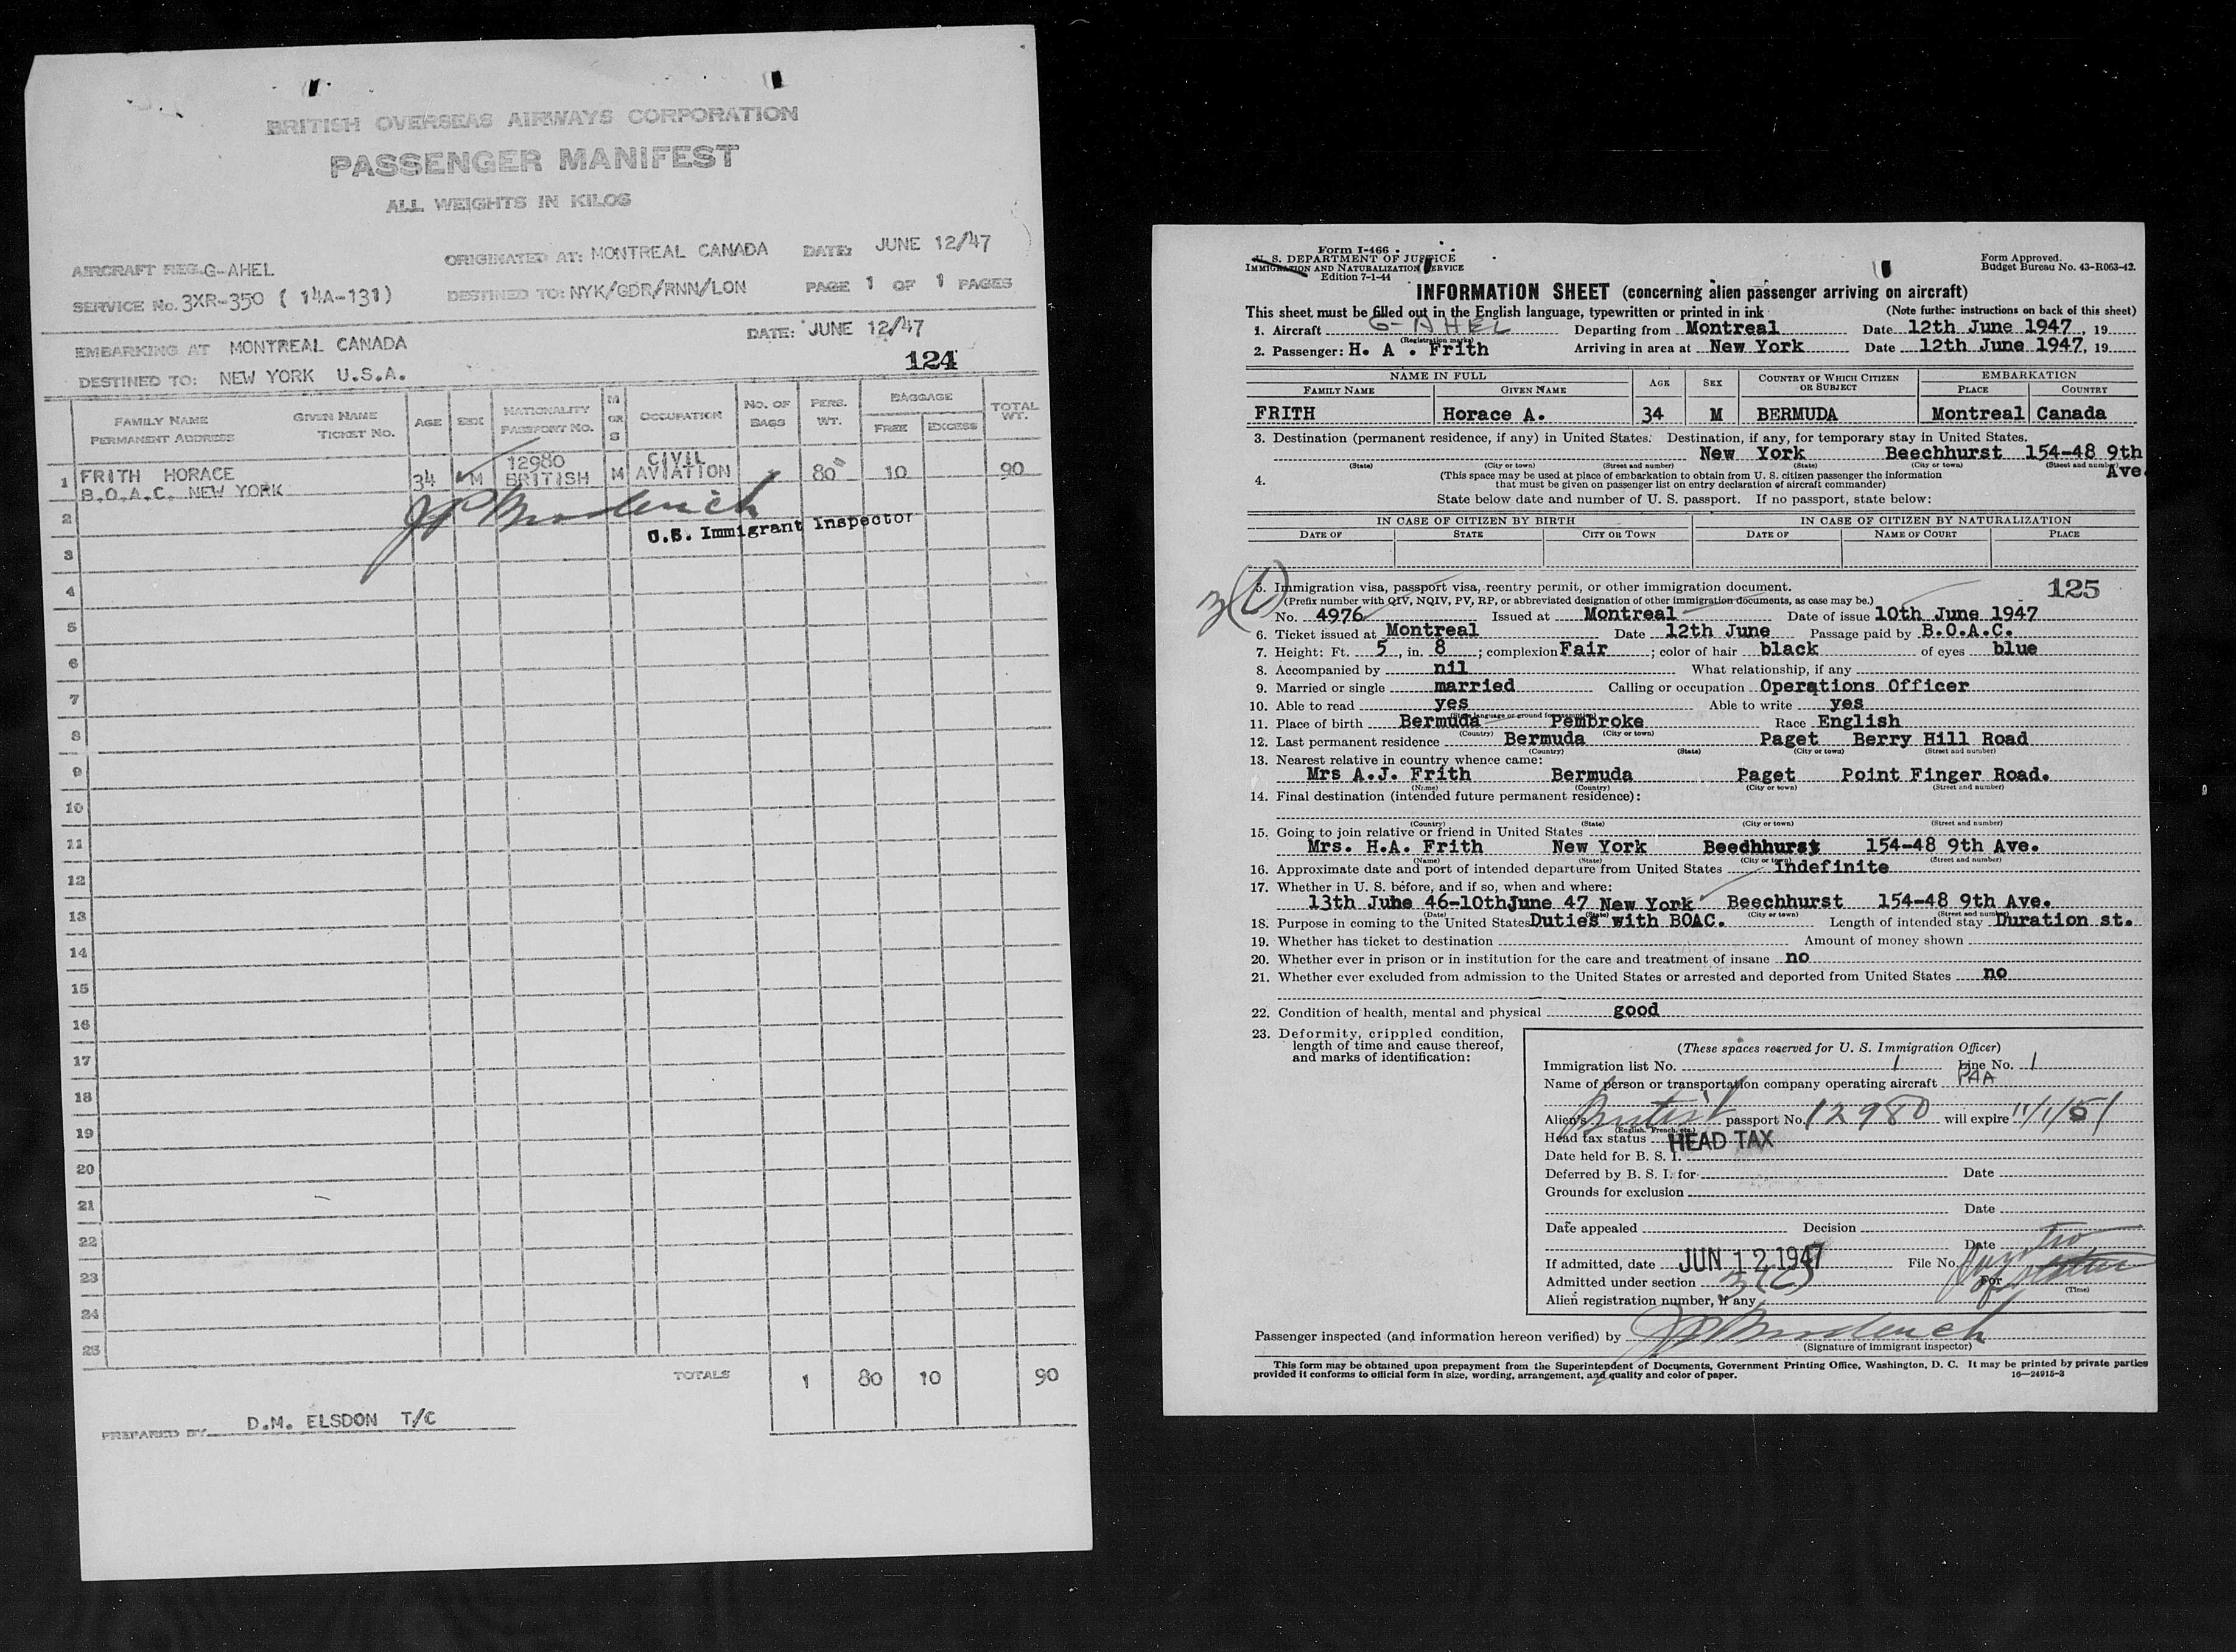 BRITISH OVERSEAS AIRWAYS CORPORATION
PASSENGER MANIFEST
ALL WEIGHTS IN KILOS
AIRCRAFT REG. G-AHEL ORIGINATED AT: MONTREAL CANADA DATE: JUNE 12/47
SERVICE No. 3XR-350 ( 14A-131) DESTINED TO: NYK/GDR/RNN/LON PAGE 1 OF 1 PAGES
EMBARKING AT MONTREAL CANADA DATE: JUNE 12/47
DESTINED TO: NEW YORK U.S.A. 124
FAMILY NAME GIVEN NAME AGE SEX NATIONALITY M OR S OCCUPATION NO. OF BAGS PERS. WT. BAGGAGE TOTAL WT.
PERMANENT ADDRESS TICKET NO. PASSPORT NO. FREE EXCESS
1 FRITH HORACE 34 M 12980 BRITISH M CIVIL AVIATION 1 80 10 90
B.O.A.C. NEW YORK
2
U.S. Immigrant Inspector
3
4
5
6
7
8
9
10
11
12
13
14
15
16
17
18
19
20
21
22
23
24
25
TOTALS 1 80 10 90
PREPARED BY D.M. ELSDON T/C
Form I-466
U. S. DEPARTMENT OF JUSTICE
IMMIGRATION AND NATURALIZATION SERVICE
Edition 7-1-44
Form Approved.
Budget Bureau No. 43-R063-42.
INFORMATION SHEET (concerning alien passenger arriving on aircraft)
This sheet must be filled out in the English language, typewritten or printed in ink (Note further instructions on back of this sheet)
1. Aircraft G-AHEL Departing from Montreal Date 12th June 1947, 19
(Registration marks)
2. Passenger: H. A . Frith Arriving in area at New York Date 12th June 1947, 19
NAME IN FULL AGE SEX COUNTRY OF WHICH CITIZEN OR SUBJECT EMBARKATION
FAMILY NAME GIVEN NAME PLACE COUNTRY
FRITH Horace A. 34 M BERMUDA Montreal Canada
3. Destination (permanent residence, if any) in United States. Destination, if any, for temporary stay in United States.
New York Beechhurst 154-48 9th Ave.
(State) (City or town) (Street and number) (State) (City or town) (Street and number)
4. (This space may be used at place of embarkation to obtain from U. S. citizen passenger the information
that must be given on passenger list on entry declaration of aircraft commander)
State below date and number of U. S. passport. If no passport, state below:
IN CASE OF CITIZEN BY BIRTH IN CASE OF CITIZEN BY NATURALIZATION
DATE OF STATE CITY OR TOWN DATE OF NAME OF COURT PLACE
5. Immigration visa, passport visa, reentry permit, or other immigration document. 125
(Prefix number with QIV, NQIV, PV, RP, or abbreviated designation of other immigration documents, as case may be.)
No. 4976 Issued at Montreal Date of issue 10th June 1947
6. Ticket issued at Montreal Date 12th June Passage paid by B.O.A.C.
7. Height: Ft. 5, in. 8; complexion Fair; color of hair black of eyes blue
8. Accompanied by nil What relationship, if any
9. Married or single married Calling or occupation Operations Officer
10. Able to read yes Able to write yes
11. Place of birth Bermuda Pembroke Race English
(Country) (City or town)
12. Last permanent residence Bermuda Paget Berry Hill Road
(Country) (State) (City or town) (Street and number)
13. Nearest relative in country whence came:
Mrs A.J. Frith Bermuda Paget Point Finger Road.
(Name) (Country) (City or town) (Street and number)
14. Final destination (intended future permanent residence):
(Country) (State) (City or town) (Street and number)
15. Going to join relative or friend in United States
Mrs. H.A. Frith New York Beedhhurst 154-48 9th Ave.
(Name) (State) (City or town) (Street and number)
16. Approximate date and port of intended departure from United States Indefinite
17. Whether in U. S. before, and if so, when and where:
13th June 46-10thJune 47 New York Beechhurst 154-48 9th Ave.
(Date) (State) (City or town) (Street and number)
18. Purpose in coming to the United States Duties with BOAC. Length of intended stay Duration st.
19. Whether has ticket to destination Amount of money shown
20. Whether ever in prison or in institution for the care and treatment of insane no
21. Whether ever excluded from admission to the United States or arrested and deported from United States no
22. Condition of health, mental and physical good
23. Deformity, crippled condition,
length of time and cause thereof,
and marks of identification:
(These spaces reserved for U. S. Immigration Officer)
Immigration list No. 1 Line No. 1
Name of person or transportation company operating aircraft PAA
Alien's British passport No. 12980 will expire 11/1/51
(English, French, etc.)
Head tax status HEAD TAX
Date held for B. S. I.
Deferred by B. S. I. for Date
Grounds for exclusion
Date
Date appealed Decision
Date
If admitted, date JUN 12 1947 File No.
Admitted under section 3(C) For
(Time)
Alien registration number, if any
Passenger inspected (and information hereon verified) by
(Signature of immigrant inspector)
This form may be obtained upon prepayment from the Superintendent of Documents, Government Printing Office, Washington, D. C. It may be printed by private parties
provided it conforms to official form in size, wording, arrangement, and quality and color of paper. 16—24915-3